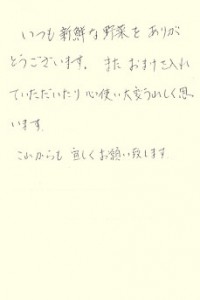 いつも新鮮な野菜をありが
とうございます。また おまけを入れ
ていただいたり 心使い大変うれしく思
います。
これからも 宜しくお願い致します